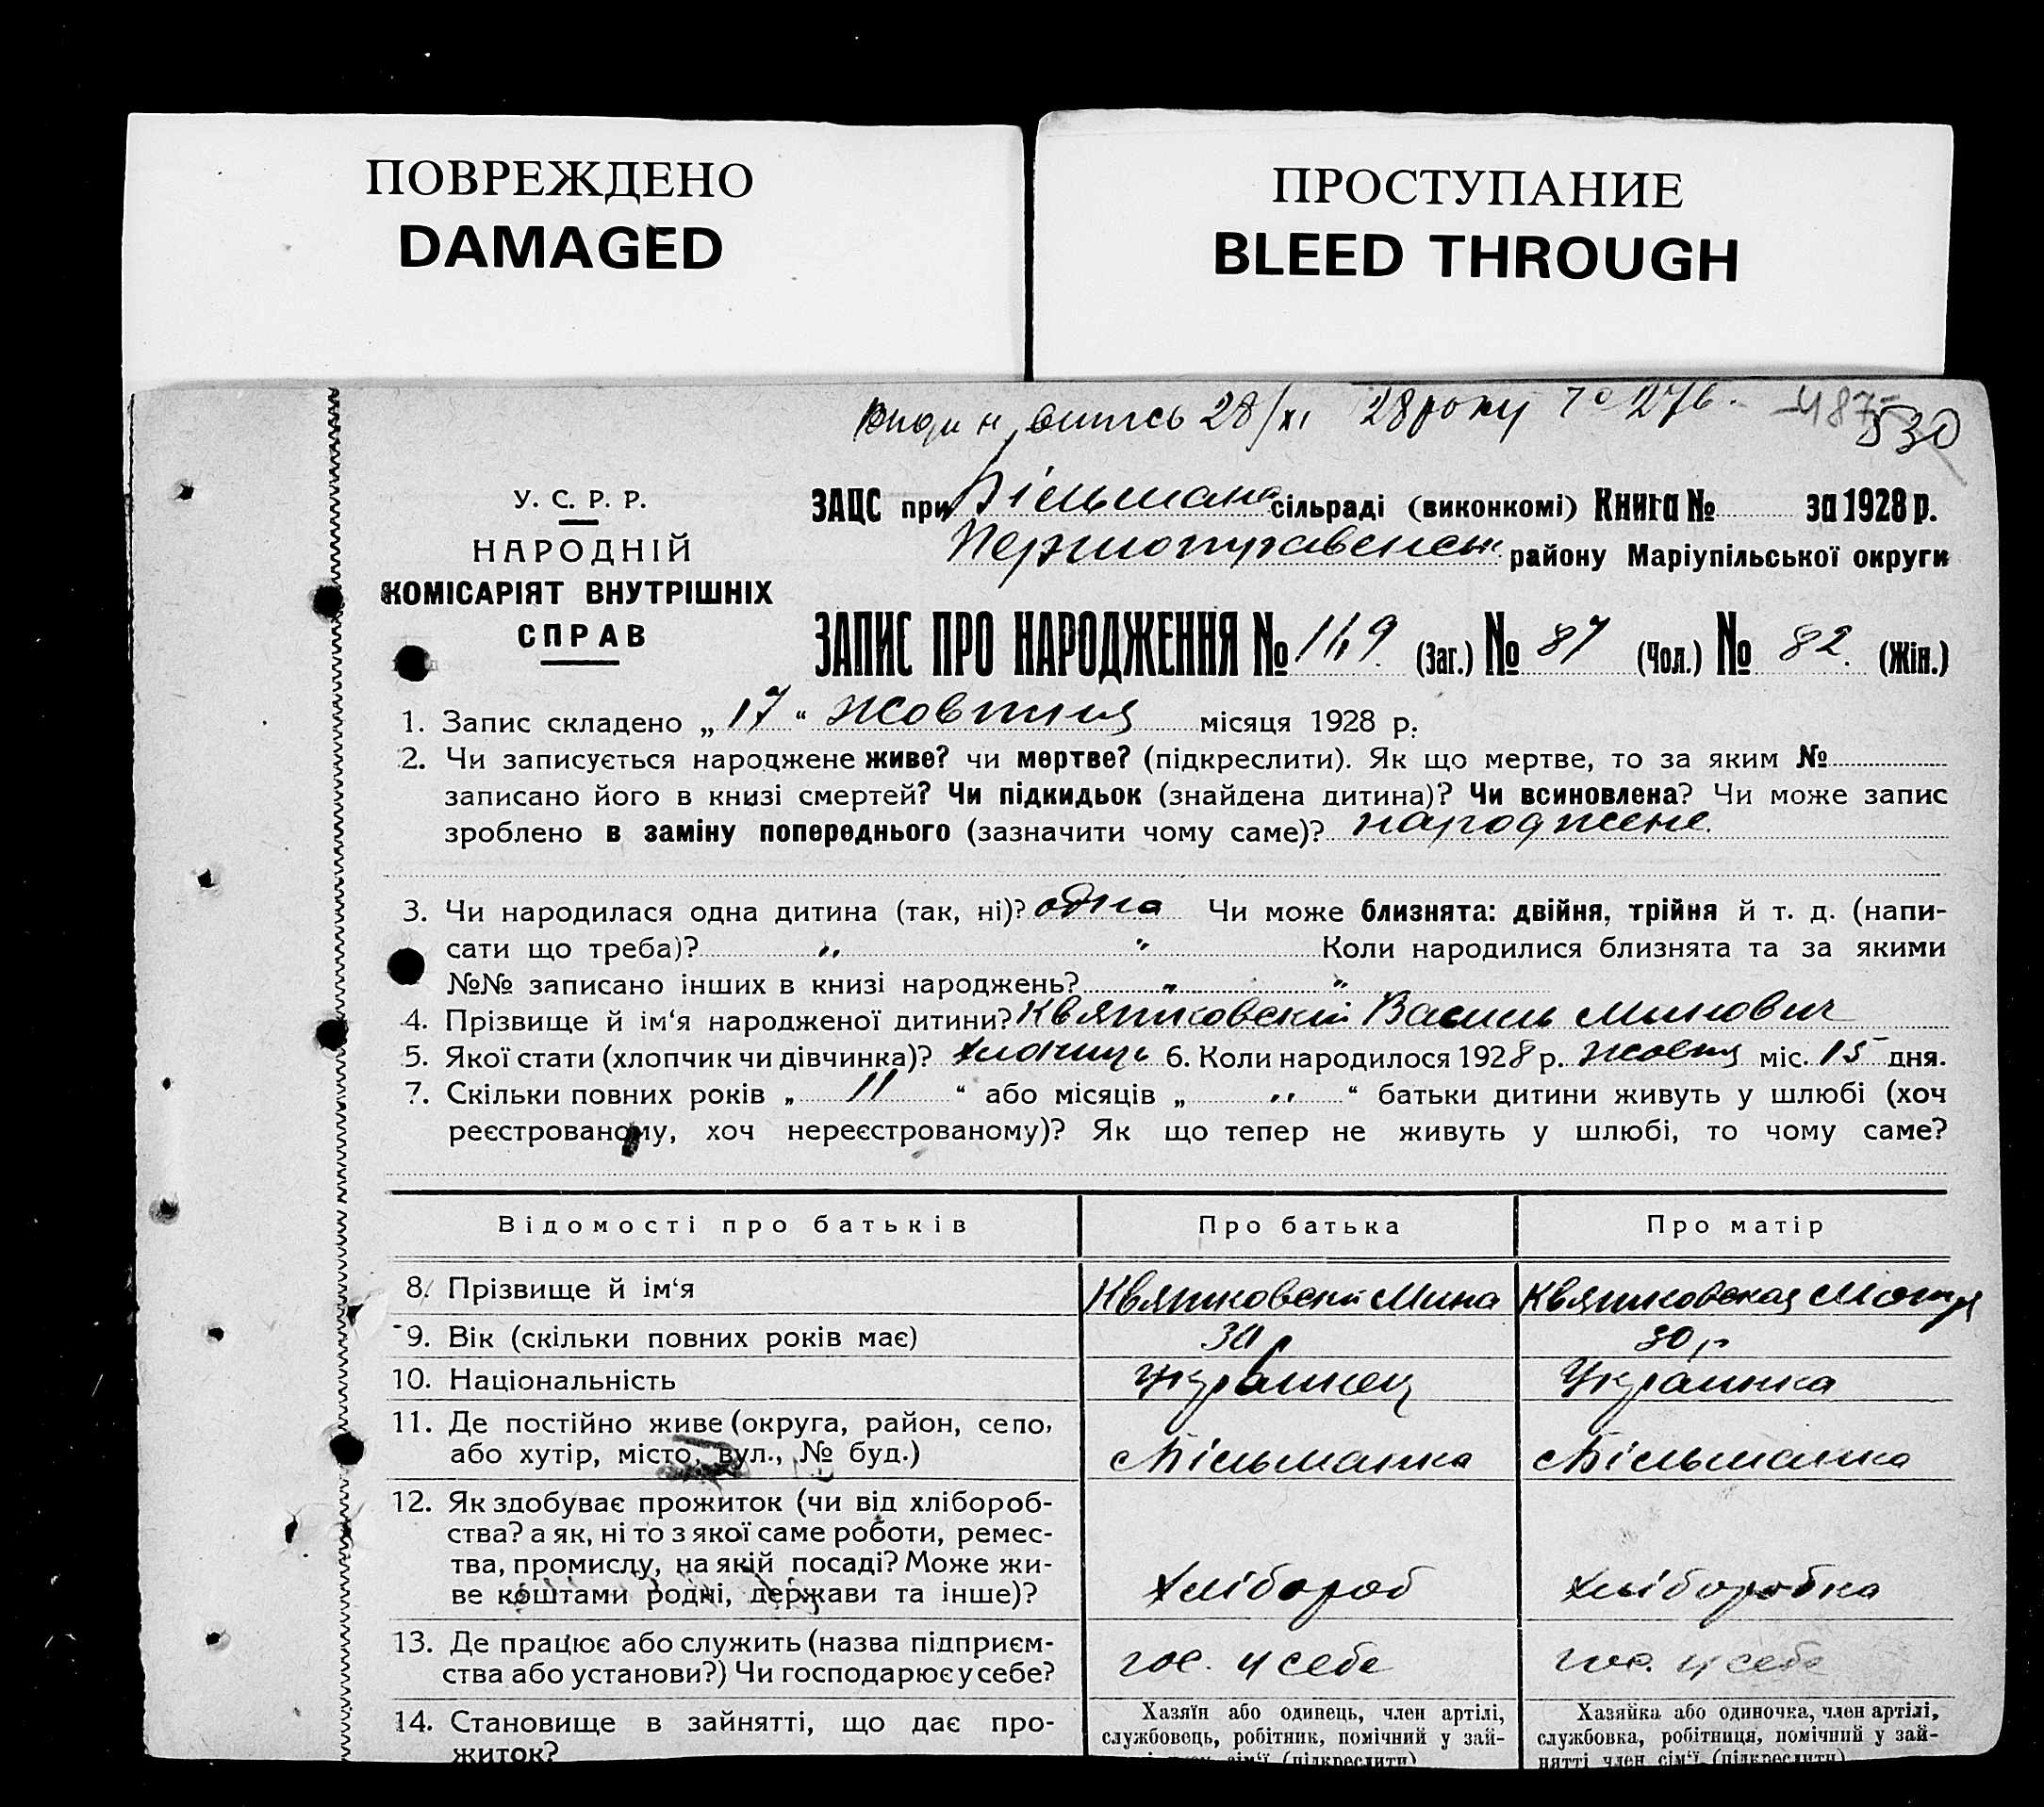 ПОВРЕЖДЕНО
DAMAGED
ПРОСТУПАНИЕ
BLEED THROUGH
витсь 28/XI 28 року № 276. 487
530
У. С. Р. Р.
НАРОДНІЙ
КОМІСАРІЯТ ВНУТРІШНІХ
СПРАВ
ЗАЦС при Більманс сільраді (виконкомі) Книга № за 1928 р.
району Маріупільської округи
ЗАПИС ПРО НАРОДЖЕННЯ № 169. (Заг.) № 87 (Чол.) № 82. (Жін.)
1. Запис складено „ 17 “ жовтня місяця 1928 р.
2. Чи записується народжене живе? чи мертве? (підкреслити). Як що мертве, то за яким №
записано його в книзі смертей? Чи підкидьок (знайдена дитина)? Чи всиновлена? Чи може запис
зроблено в заміну попереднього (зазначити чому саме)? народжене.
3. Чи народилася одна дитина (так, ні)? одна Чи може близнята: двійня, трійня й т. д. (напи-
сати що треба)? „ „ Коли народилися близнята та за якими
№№ записано інших в книзі народжень? „ „
4. Прізвище й ім‘я народженої дитини? Квятковский Василь Минович
5. Якої стати (хлопчик чи дівчинка)? хлопчик 6. Коли народилося 1928 р. жовтня міс. 15 дня.
7. Скільки повних років „ 11 “ або місяців „ „ “ батьки дитини живуть у шлюбі (хоч
реєстрованому, хоч нереєстрованому)? Як що тепер не живуть у шлюбі, то чому саме?
Відомості про батьків Про батька Про матір
8. Прізвище й ім‘я Квятковский Мина Квятковская Мотря
9. Вік (скільки повних років має) 30 р 30 р
10. Національність Українец Українка
11. Де постійно живе (округа, район, село,
або хутір, місто, вул., № буд.) Більманка Більманка
12. Як здобуває прожиток (чи від хлібороб-
ства? а як, ні то з якої саме роботи, ремес-
тва, промислу, на якій посаді? Може жи-
ве коштами родні, держави та інше)? хлібороб хлібооробка
13. Де працює або служить (назва підприєм-
ства або установи?) Чи господарює у себе? гос. у себе гос. у себе
14. Становище в зайнятті, що дає про-
житок?
Хазяїн або одинець, член артілі,
службовець, робітник, помічний у зай-
сім‘ї (підкреслити)
Хазяйка або одиночка, член артілі,
службовка, робітниця, помічний у зай-
нятті член сім‘ї (підкреслити)